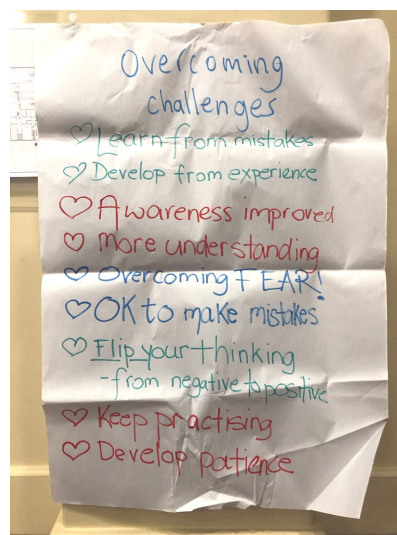 Overcoming
challenges
♡ Learn from mistakes
♡ Develop from experience
♡ Awareness improved
♡ More understanding
♡ Overcoming FEAR!
♡ OK to make mistakes
♡ Flip your thinking
-from negative to positive
♡ Keep practising
♡ Develop patience